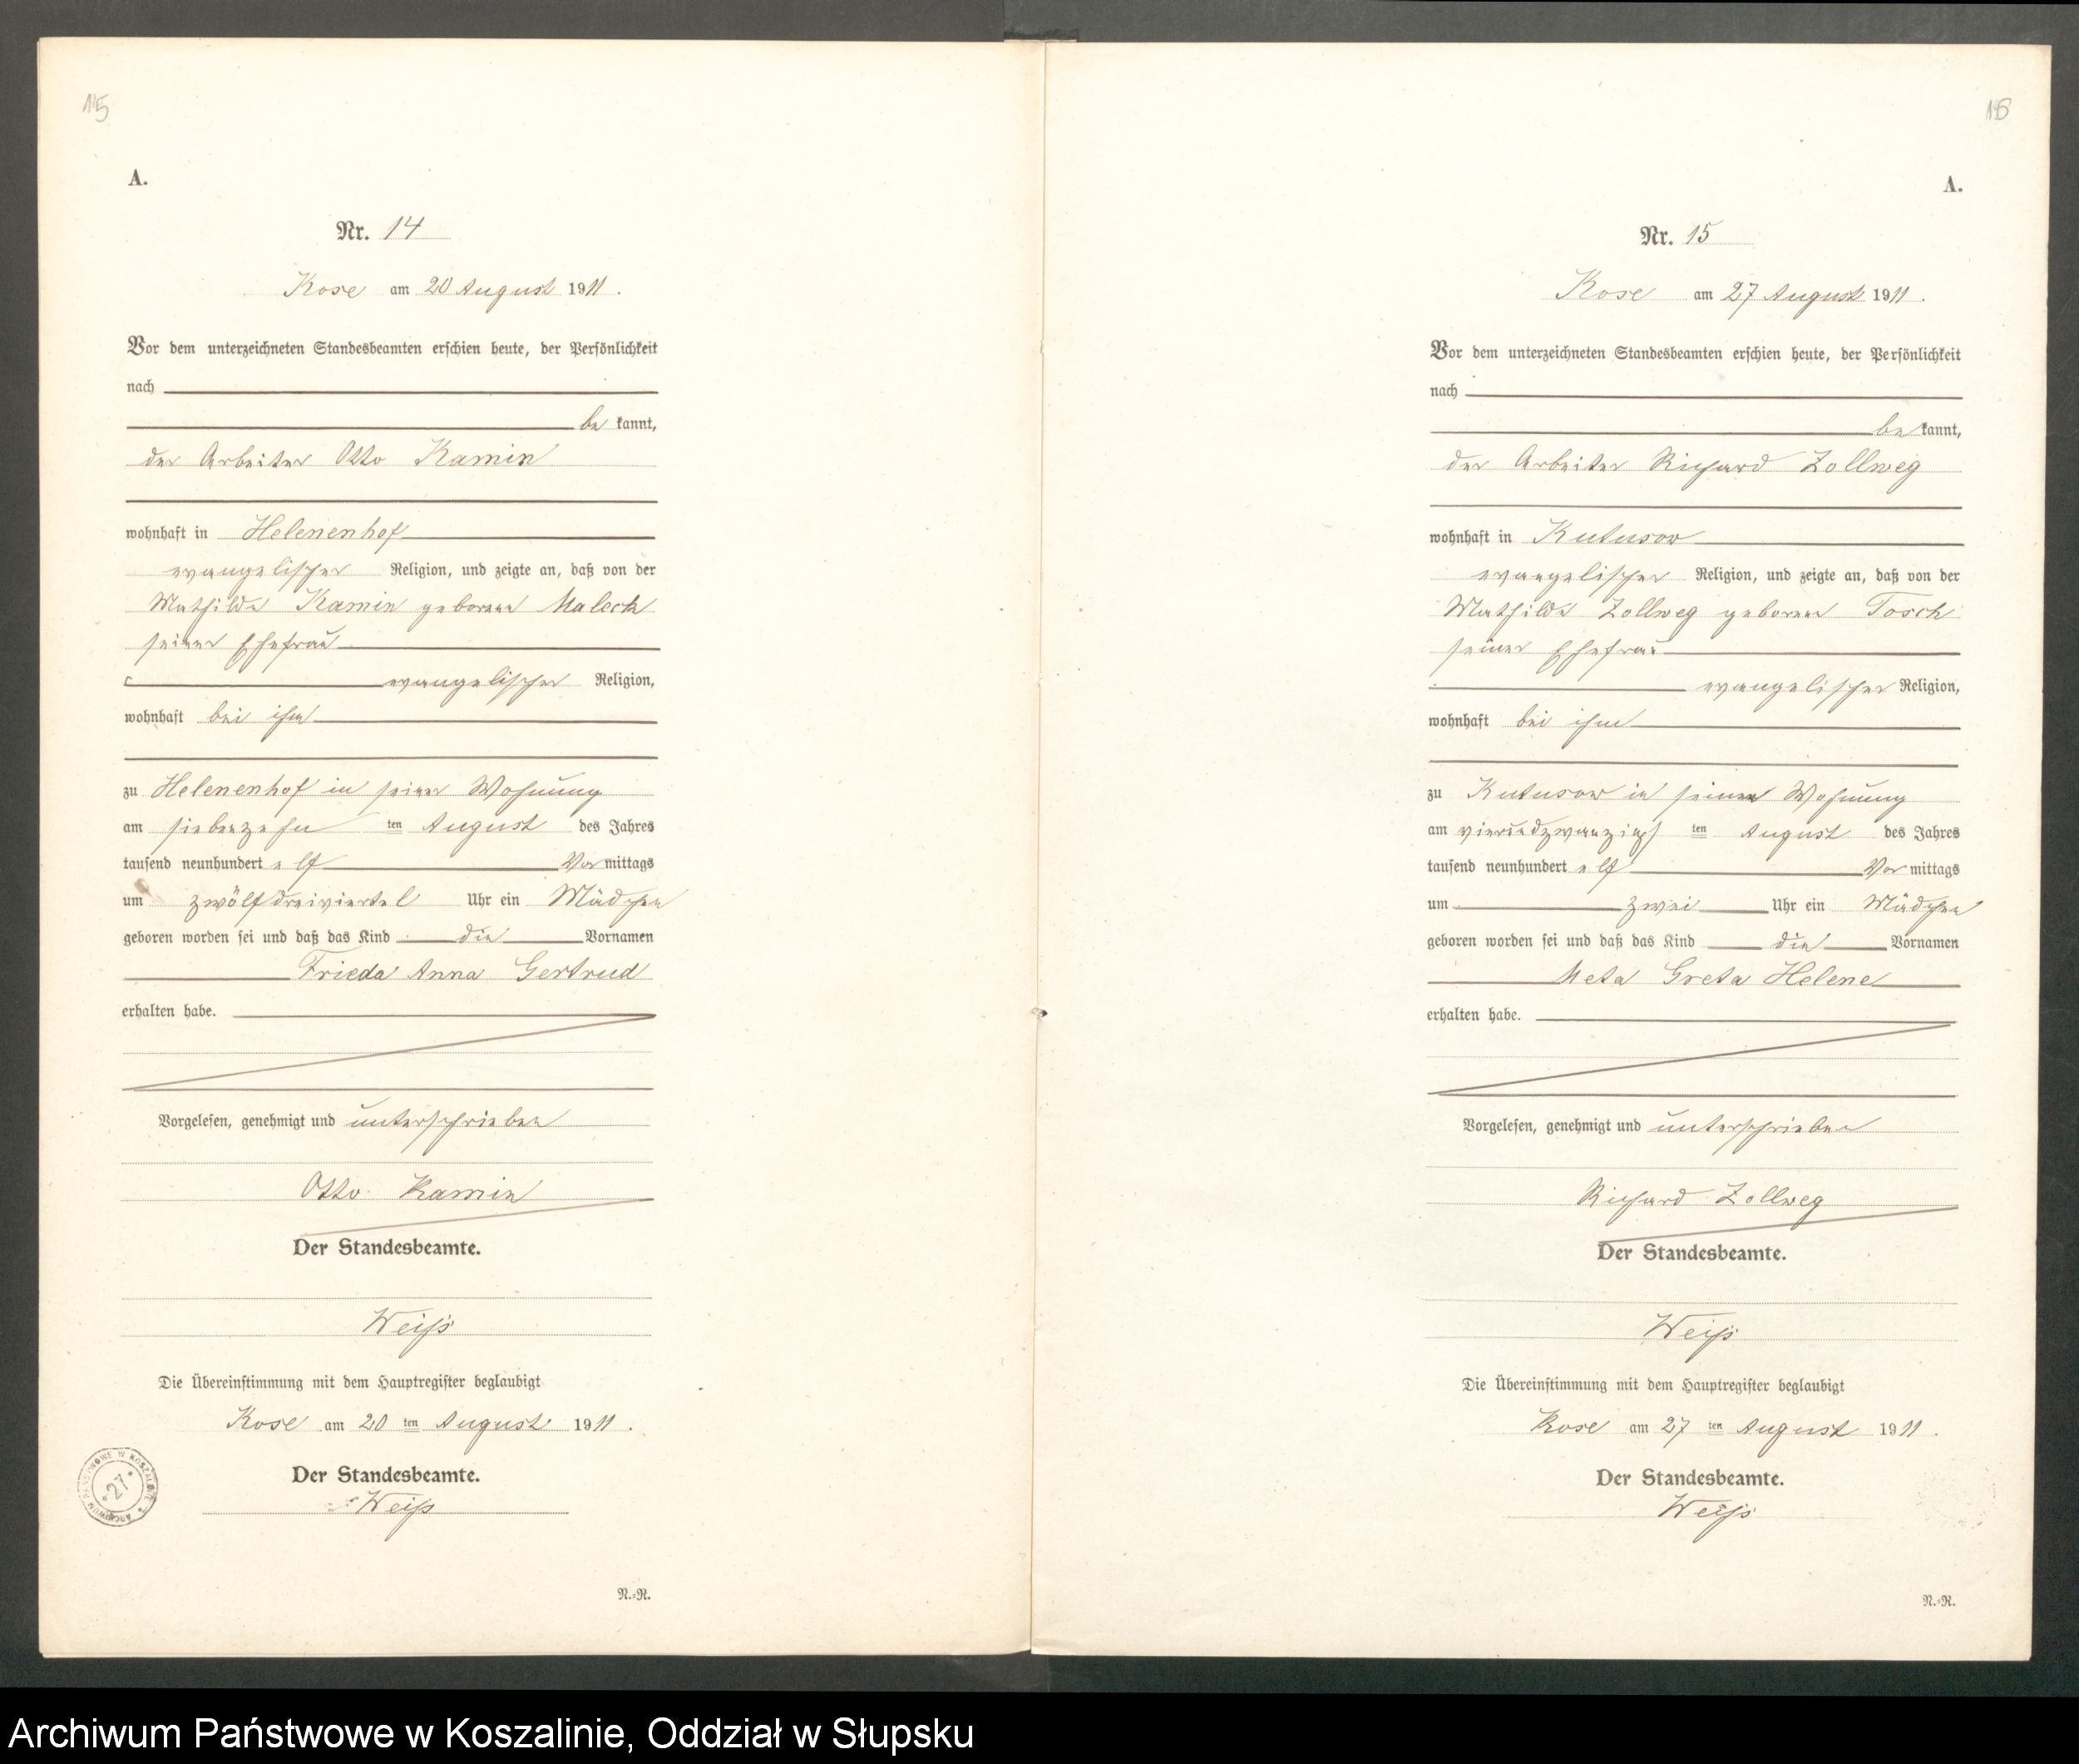 15
A.
Nr. 14
Kose am 20 August 1911.
Vor dem unterzeichneten Standesbeamten erschien heute, der Persönlichkeit
nach
bekannt,
der Arbeiter Otto Kamin
wohnhaft in Helenenhof
evangelischer Religion, und zeigte an, daß von der
Mathilde Kamin geborene Maleck
seiner Ehefrau
evangelischer Religion,
wohnhaft bei ihm
zu Helenenhof in seiner Wohnung
am siebenzehn ten August des Jahres
tausend neunhundert elf Vormittags
um zwölfdreiviertel Uhr ein Mädchen
geboren worden sei und daß das Kind die Vornamen
Frieda Anna Gertrud
erhalten habe.
Vorgelesen, genehmigt und unterschrieben
Otto Kamin
Der Standesbeamte.
Weiß
Die Übereinstimmung mit dem Hauptregister beglaubigt
Kose am 20 ten August 1911.
Der Standesbeamte.
Weiß
ARCHIWUM PAŃSTWOWE W KOSZALINIE
* 27 *
N.=R.
16
A.
Nr. 15
Kose am 27 August 1911.
Vor dem unterzeichneten Standesbeamten erschien heute, der Persönlichkeit
nach
bekannt,
der Arbeiter Richard Zollweg
wohnhaft in Kutusow
evangelischer Religion, und zeigte an, daß von der
Mathilde Zollweg geborene Tosch
seiner Ehefrau
evangelischer Religion,
wohnhaft bei ihm
zu Kutusow in seiner Wohnung
am vierundzwanzigs ten August des Jahres
tausend neunhundert elf Vormittags
um zwei Uhr ein Mädchen
geboren worden sei und daß das Kind die Vornamen
Meta Greta Helene
erhalten habe.
Vorgelesen, genehmigt und unterschrieben
Richard Zollweg
Der Standesbeamte.
Weiß
Die Übereinstimmung mit dem Hauptregister beglaubigt
Kose am 27 ten August 1911.
Der Standesbeamte.
Weiß
N.=R.
Archiwum Państwowe w Koszalinie, Oddział w Słupsku